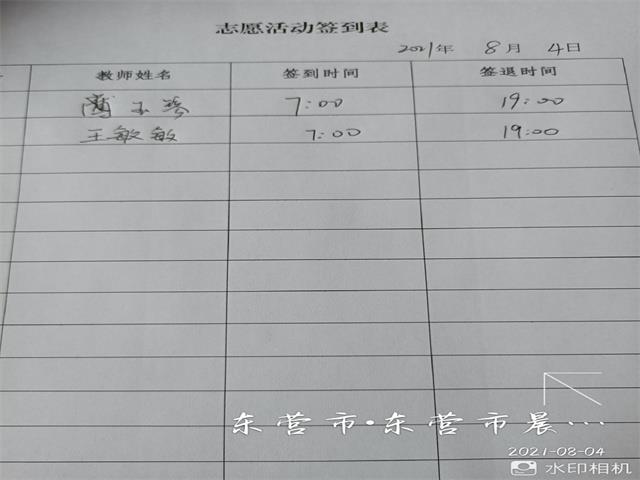 志愿活动签到表
2021年 8月 4日
教师姓名 签到时间 签退时间
7:00 19:00
王敏敏 7:00 19:00
东营市·东营市晨...
2021-08-04
水印相机